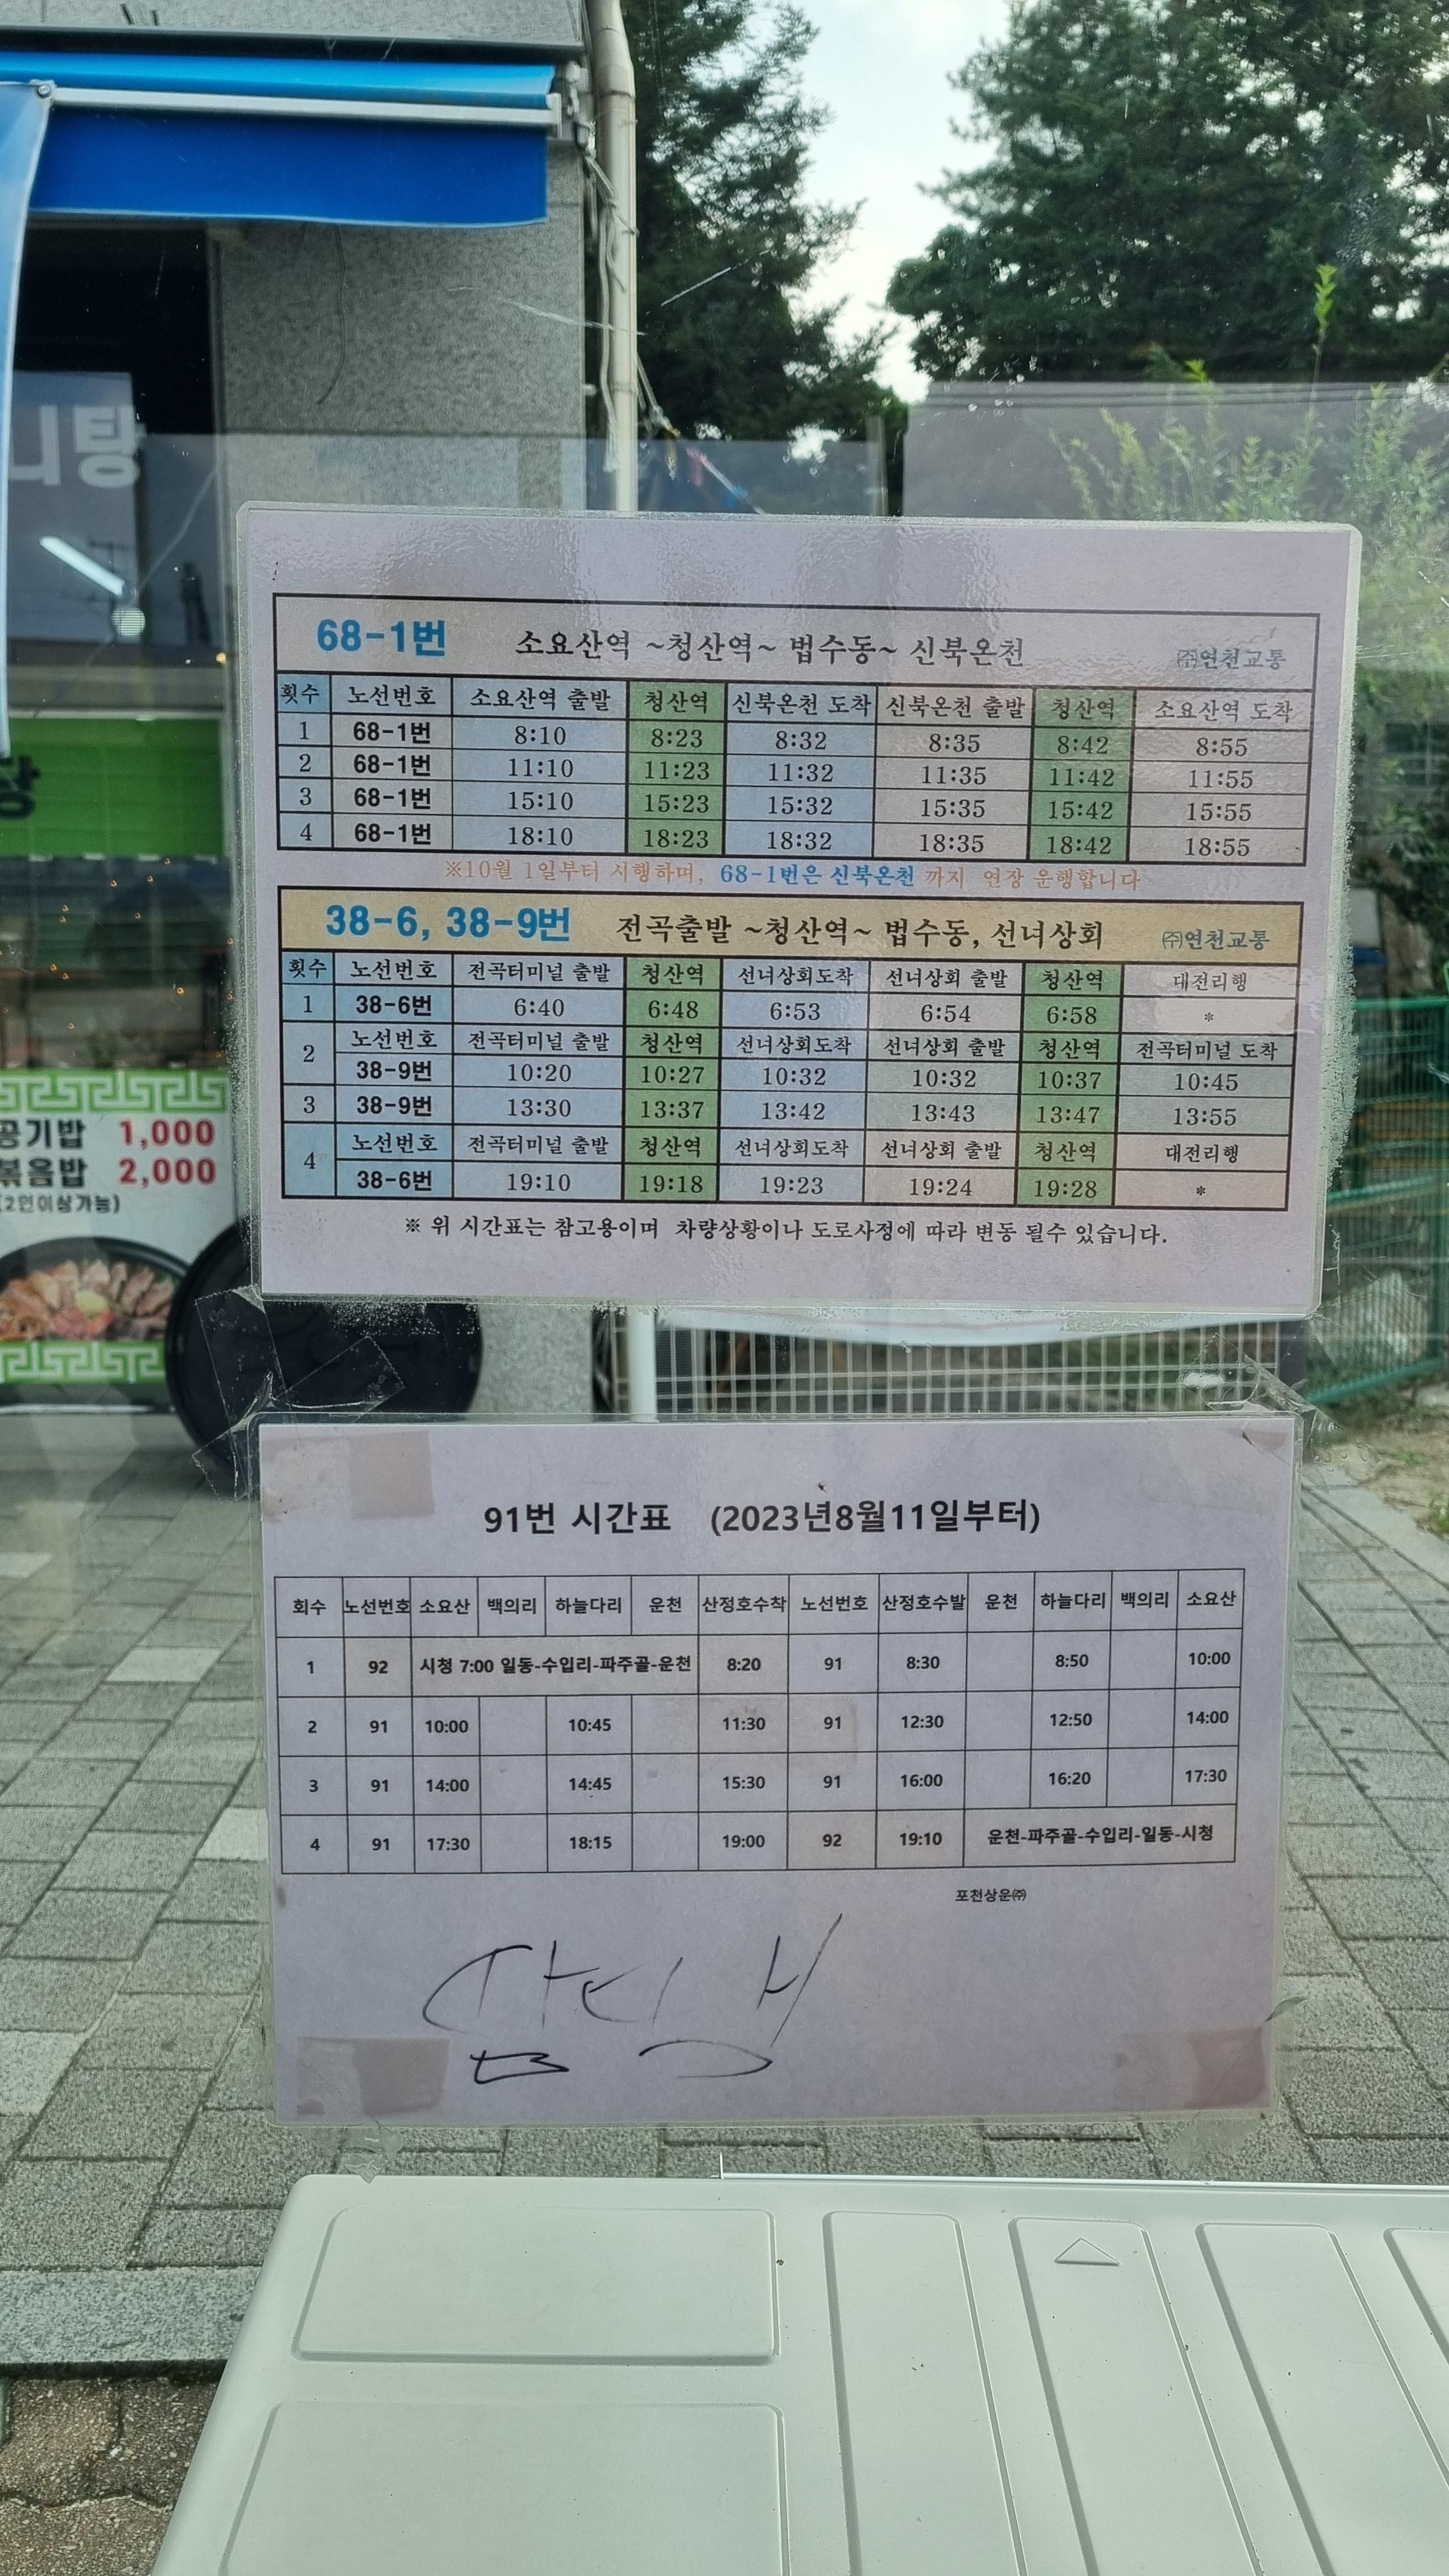 니탕
68-1번 소요산역 ~청산역~ 법수동~ 신북온천 ㈜연천교통
횟수 노선번호 소요산역 출발 청산역 신북온천 도착 신북온천 출발 청산역 소요산역 도착
1 68-1번 8:10 8:23 8:32 8:35 8:42 8:55
2 68-1번 11:10 11:23 11:32 11:35 11:42 11:55
3 68-1번 15:10 15:23 15:32 15:35 15:42 15:55
4 68-1번 18:10 18:23 18:32 18:35 18:42 18:55
※10월 1일부터 시행하며, 68-1번은 신북온천 까지 연장 운행합니다
38-6, 38-9번 전곡출발 ~청산역~ 법수동, 선녀상회 ㈜연천교통
횟수 노선번호 전곡터미널 출발 청산역 선녀상회도착 선녀상회 출발 청산역 대전리행
1 38-6번 6:40 6:48 6:53 6:54 6:58 *
2 노선번호 전곡터미널 출발 청산역 선녀상회도착 선녀상회 출발 청산역 전곡터미널 도착
38-9번 10:20 10:27 10:32 10:32 10:37 10:45
3 38-9번 13:30 13:37 13:42 13:43 13:47 13:55
4 노선번호 전곡터미널 출발 청산역 선녀상회도착 선녀상회 출발 청산역 대전리행
38-6번 19:10 19:18 19:23 19:24 19:28 *
※ 위 시간표는 참고용이며 차량상황이나 도로사정에 따라 변동 될수 있습니다.
공기밥 1,000
볶음밥 2,000
(2인이상가능)
91번 시간표 (2023년8월11일부터)
회수 노선번호 소요산 백의리 하늘다리 운천 산정호수착 노선번호 산정호수발 운천 하늘다리 백의리 소요산
1 92 시청 7:00 일동-수입리-파주골-운천 8:20 91 8:30 8:50 10:00
2 91 10:00 10:45 11:30 91 12:30 12:50 14:00
3 91 14:00 14:45 15:30 91 16:00 16:20 17:30
4 91 17:30 18:15 19:00 92 19:10 운천-파주골-수입리-일동-시청
포천상운㈜